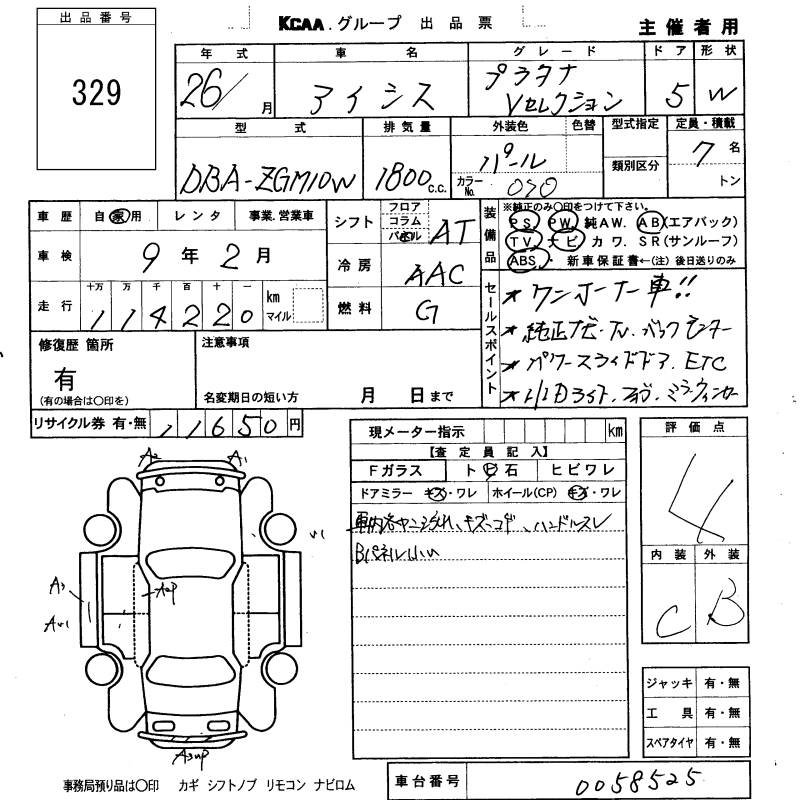 出品番号
329
KCAA グループ 出品票
主催者用
年式 車名 グレード ドア 形状
26/ 月 アイシス プラタナ Vセレクション 5 W
型式 排気量 外装色 色替 型式指定 定員・積載
類別区分
DBA-ZGM10W 1800 c.c. パール 7 名
カラーNo. 070 トン
車歴 自家用 レンタ 事業.営業車
車検 9 年 2 月
走行 十万 万 千 百 十 一 km マイル
1 1 4 2 2 0
シフト フロア コラム AT
冷房 AAC
燃料 G
装備品 ※純正のみ〇印をつけて下さい。
PS. PW. 純AW. AB(エアバック)
TV. ナビ カワ. SR(サンルーフ)
ABS ・ 新車保証書←(注) 後日送りのみ
セールスポイント
★ワンオーナー車!!
★純正ナビ・TV. バックモニター
★パワースライドドア. ETC
★HIDライト. フォグ. ミラーウィンカー
修復歴 箇所
有
(有の場合は〇印を)
注意事項
名変期日の短い方 月 日まで
リサイクル券 有・無 11650 円
現メーター指示 km
【査定員記入】
Fガラス ト ビ 石 ヒビワレ
ドアミラー キズ・ワレ ホイール(CP) キズ・ワレ
車内各ヤニ汚れ、キズ・コゲ、ハンドルスレ
Bパネル
評価点
4
内装 外装
C B
ジャッキ 有・無
工具 有・無
スペアタイヤ 有・無
A2 A1
A3
A2P
事務局預り品は〇印 カギ シフトノブ リモコン ナビロム
車台番号 0058525